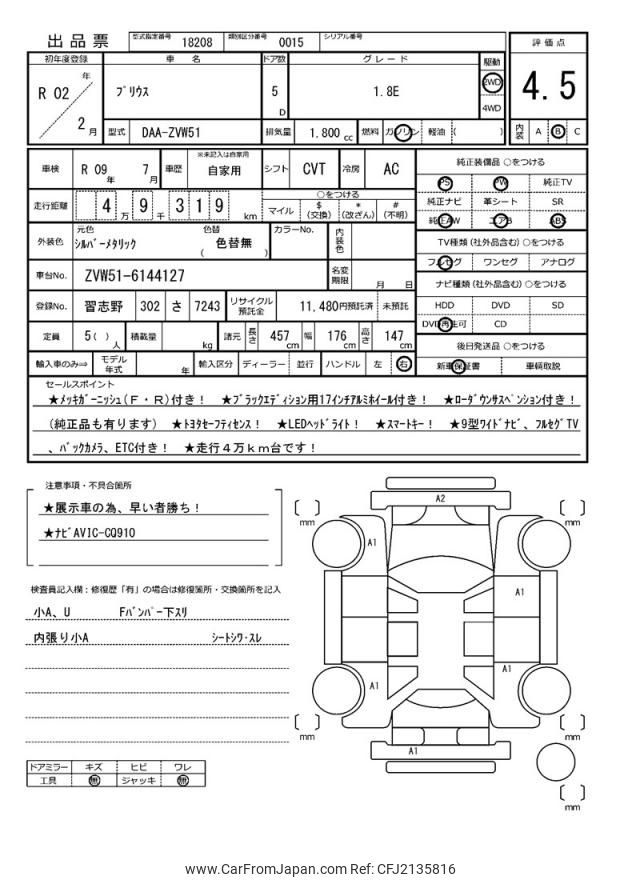 出品票 型式指定番号 18208 類別区分番号 0015 シリアル番号
評価点
4.5
内装 A B C
初年度登録 車名 ドア数 グレード 駆動
R 02 年 プリウス 5 D 1.8E 2WD
4WD
2 月 型式 DAA-ZVW51 排気量 1.800 cc 燃料 ガソリン 軽油 ( )
車検 R 09 年 7 月 車歴 ※未記入は自家用 自家用 シフト CVT 冷房 AC
走行距離 4 万 9 千 3 1 9 km ○をつける
マイル $ (交換) * (改ざん) # (不明)
外装色 元色 シルバーメタリック 色替 ( 色替無 ) カラーNo. 内装色
車台No. ZVW51-6144127 名変期限 月 日
登録No. 習志野 302 さ 7243 リサイクル預託金 11,480円預託済 未預託
定員 5( )人 積載量 kg 諸元 長さ 457 cm 幅 176 cm 高さ 147 cm
輸入車のみ⇒ モデル年式 年 輸入区分 ディーラー 並行 ハンドル 左 右
純正装備品 ○をつける
PS PW 純正TV
純正ナビ 革シート SR
純正AW エアB ABS
TV種類 (社外品含む) ○をつける
フルセグ ワンセグ アナログ
ナビ種類 (社外品含む) ○をつける
HDD DVD SD
DVD再生可 CD
後日発送品 ○をつける
新車保証書 車輌取説
セールスポイント
★メッキガーニッシュ(F・R)付き! ★ブラックエディション用17インチアルミホイール付き! ★ローダウンサスペンション付き!
(純正品も有ります) ★トヨタセーフティセンス! ★LEDヘッドライト! ★スマートキー! ★9型ワイドナビ、フルセグTV
、バックカメラ、ETC付き! ★走行4万km台です!
注意事項・不具合箇所
★展示車の為、早い者勝ち!
★ナビAVIC-CQ910
検査員記入欄:修復歴「有」の場合は修復箇所・交換箇所を記入
小A、U Fバンパー下スリ
内張り小A シートシワ・スレ
ドアミラー キズ ヒビ ワレ
工具 無 ジャッキ 無
A2
mm mm
A1
A1
A1
A1
A1
mm mm
mm
www.CarFromJapan.com Ref: CFJ2135816